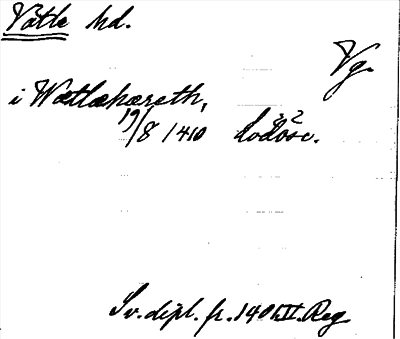 Vätle hd.
Vg.
i Wætlæhæreth,
19/8 1410 Lodose. 2
Sv. dipl. fr. 1401 II. Reg